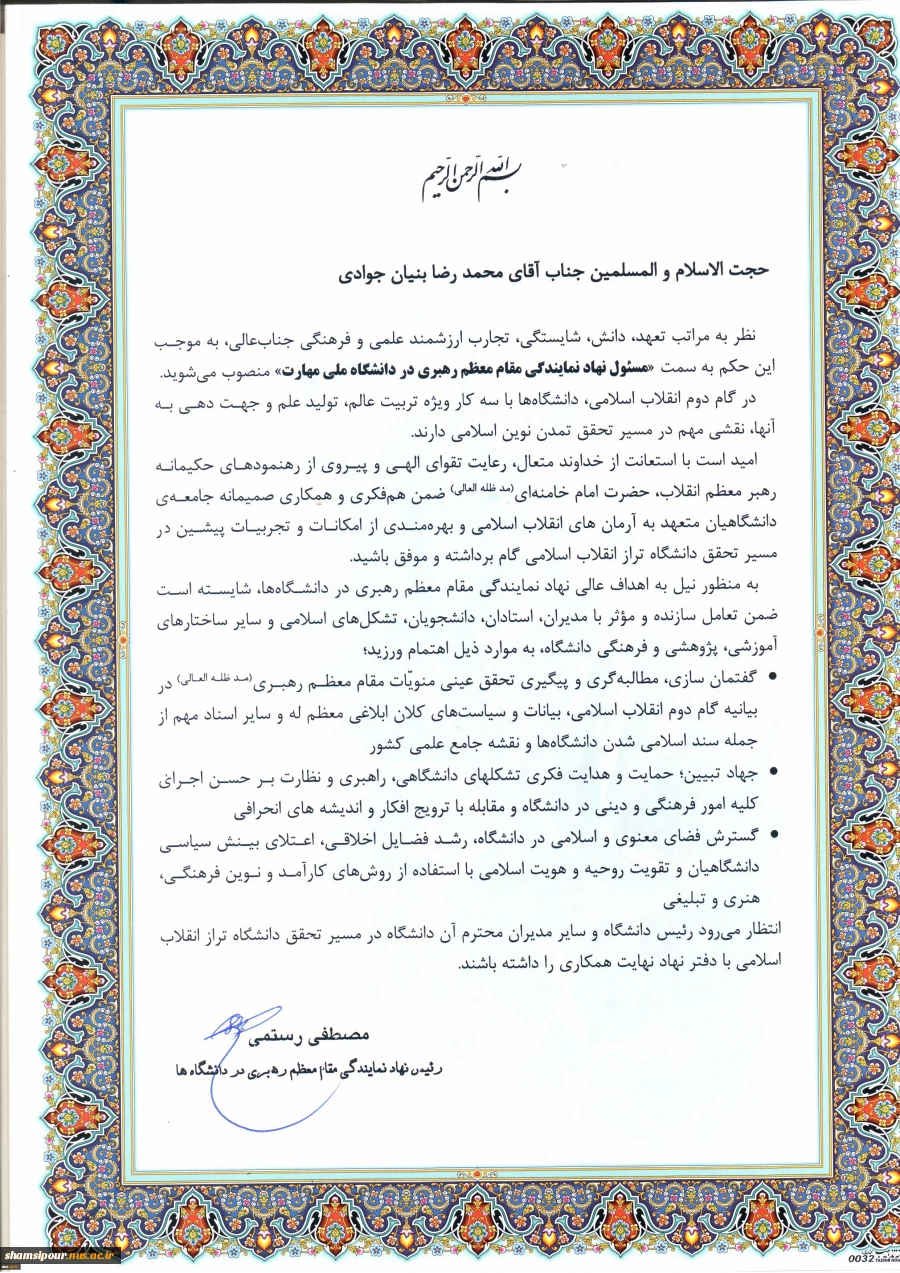 بسم الله الرحمن الرحیم
حجت الاسلام و المسلمین جناب آقای محمد رضا بنیان جوادی
نظر به مراتب تعهد، دانش، شایستگی، تجارب ارزشمند علمی و فرهنگی جناب‌عالی، به موجب
این حکم به سمت «مسئول نهاد نمایندگی مقام معظم رهبری در دانشگاه ملی مهارت» منصوب می‌شوید.
در گام دوم انقلاب اسلامی، دانشگاه‌ها با سه کار ویژه تربیت عالم، تولید علم و جهت دهی به
آنها، نقشی مهم در مسیر تحقق تمدن نوین اسلامی دارند.
امید است با استعانت از خداوند متعال، رعایت تقوای الهی و پیروی از رهنمودهای حکیمانه
رهبر معظم انقلاب، حضرت امام خامنه‌ای(مد ظله العالی) ضمن هم‌فکری و همکاری صمیمانه جامعه‌ی
دانشگاهیان متعهد به آرمان های انقلاب اسلامی و بهره‌مندی از امکانات و تجربیات پیشین در
مسیر تحقق دانشگاه تراز انقلاب اسلامی گام برداشته و موفق باشید.
به منظور نیل به اهداف عالی نهاد نمایندگی مقام معظم رهبری در دانشگاه‌ها، شایسته است
ضمن تعامل سازنده و مؤثر با مدیران، استادان، دانشجویان، تشکل‌های اسلامی و سایر ساختارهای
آموزشی، پژوهشی و فرهنگی دانشگاه، به موارد ذیل اهتمام ورزید؛
• گفتمان سازی، مطالبه‌گری و پیگیری تحقق عینی منویّات مقام معظم رهبری(مد ظله العالی) در
بیانیه گام دوم انقلاب اسلامی، بیانات و سیاست‌های کلان ابلاغی معظم له و سایر اسناد مهم از
جمله سند اسلامی شدن دانشگاه‌ها و نقشه جامع علمی کشور
• جهاد تبیین؛ حمایت و هدایت فکری تشکلهای دانشگاهی، راهبری و نظارت بر حسن اجرای
کلیه امور فرهنگی و دینی در دانشگاه و مقابله با ترویج افکار و اندیشه های انحرافی
• گسترش فضای معنوی و اسلامی در دانشگاه، رشد فضایل اخلاقی، اعتلای بینش سیاسی
دانشگاهیان و تقویت روحیه و هویت اسلامی با استفاده از روش‌های کارآمد و نوین فرهنگی،
هنری و تبلیغی
انتظار می‌رود رئیس دانشگاه و سایر مدیران محترم آن دانشگاه در مسیر تحقق دانشگاه تراز انقلاب
اسلامی با دفتر نهاد نهایت همکاری را داشته باشند.
مصطفی رستمی
رئیس نهاد نمایندگی مقام معظم رهبری در دانشگاه ها
shamsipour.nus.ac.ir
0032